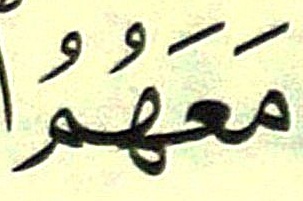 مَعَهُمُ